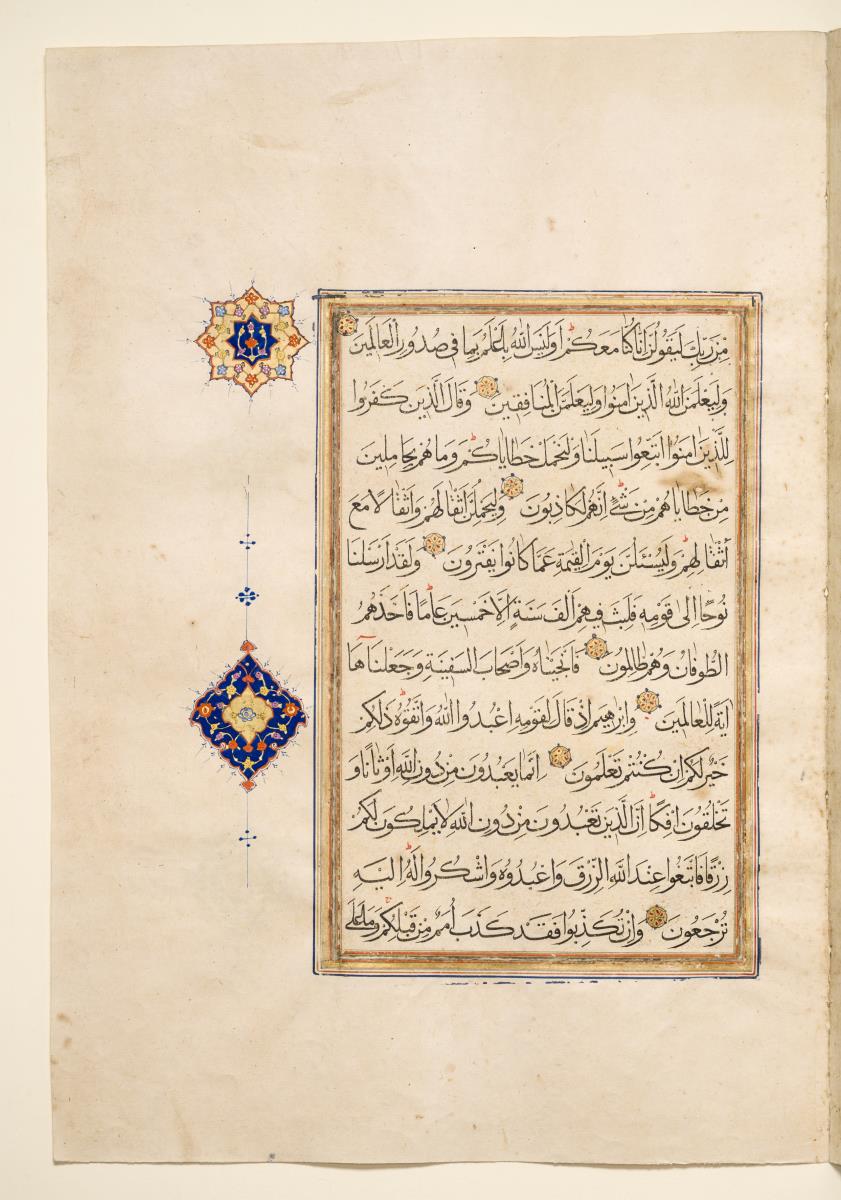 مِنْ رَبِّكَ لَيَقُولُنَّ اِنَّا كُنَّا مَعَكُمْ اَوَلَيْسَ اللّٰهُ بِاَعْلَمَ بِمَا فِى صُدُورِ الْعَالَمِينَ
وَلَيَعْلَمَنَّ اللّٰهُ الَّذِينَ اٰمَنُوا وَلَيَعْلَمَنَّ الْمُنَافِقِينَ وَقَالَ الَّذِينَ كَفَرُوا
لِلَّذِينَ اٰمَنُوا اتَّبِعُوا سَبِيلَنَا وَلْنَحْمِلْ خَطَايَاكُمْ وَمَا هُمْ بِحَامِلِينَ
مِنْ خَطَايَاهُمْ مِنْ شَىْءٍ اِنَّهُمْ لَكَاذِبُونَ وَلَيَحْمِلُنَّ اَثْقَالَهُمْ وَاَثْقَالًا مَعَ
اَثْقَالِهِمْ وَلَيُسْـَٔلُنَّ يَوْمَ الْقِيٰمَةِ عَمَّا كَانُوا يَفْتَرُونَ وَلَقَدْ اَرْسَلْنَا
نُوحًا اِلٰى قَوْمِهِ فَلَبِثَ فِيهِمْ اَلْفَ سَنَةٍ اِلَّا خَمْسِينَ عَامًا فَاَخَذَهُمُ
الطُّوفَانُ وَهُمْ ظَالِمُونَ فَاَنْجَيْنَاهُ وَاَصْحَابَ السَّفِينَةِ وَجَعَلْنَاهَا
اٰيَةً لِلْعَالَمِينَ وَاِبْرٰهِيمَ اِذْ قَالَ لِقَوْمِهِ اعْبُدُوا اللّٰهَ وَاتَّقُوهُ ذٰلِكُمْ
خَيْرٌ لَكُمْ اِنْ كُنْتُمْ تَعْلَمُونَ اِنَّمَا تَعْبُدُونَ مِنْ دُونِ اللّٰهِ اَوْثَانًا وَ
تَخْلُقُونَ اِفْكًا اِنَّ الَّذِينَ تَعْبُدُونَ مِنْ دُونِ اللّٰهِ لَا يَمْلِكُونَ لَكُمْ
رِزْقًا فَابْتَغُوا عِنْدَ اللّٰهِ الرِّزْقَ وَاعْبُدُوهُ وَاشْكُرُوا لَهُ اِلَيْهِ
تُرْجَعُونَ وَاِنْ تُكَذِّبُوا فَقَدْ كَذَّبَ اُمَمٌ مِنْ قَبْلِكُمْ وَمَا عَلَى